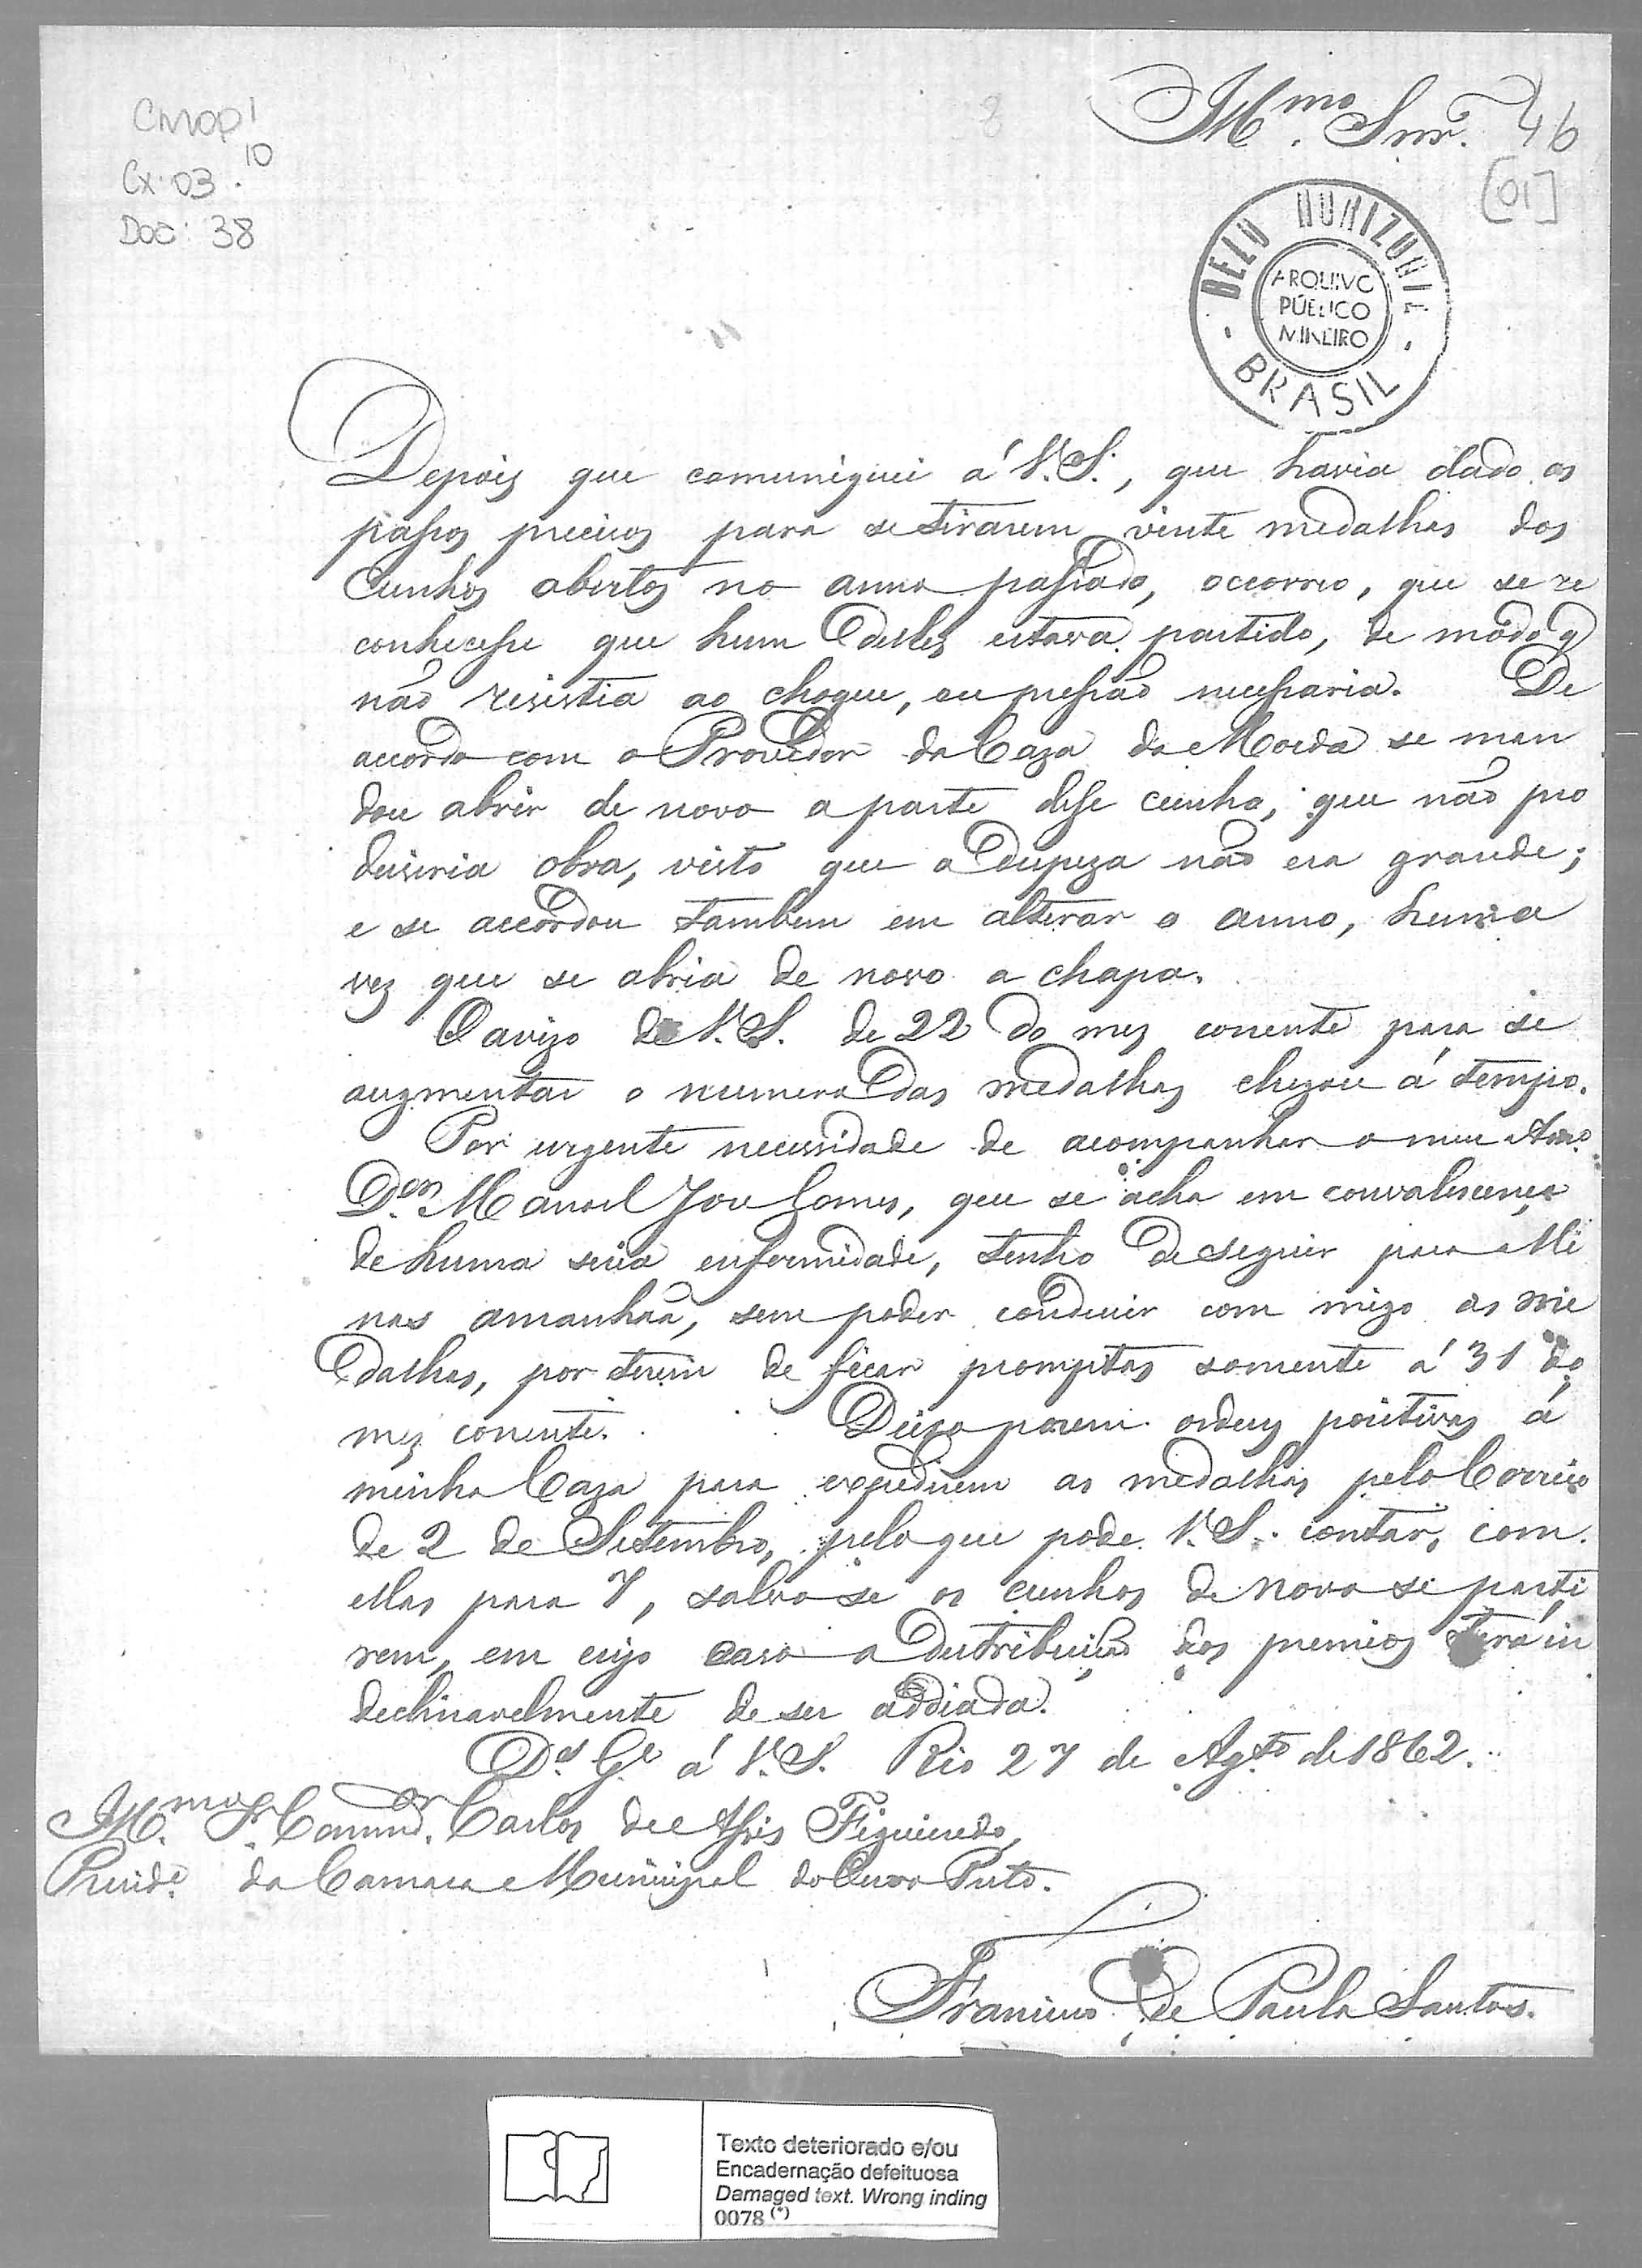 CMOP 1
10
Cx. 03.
Doc: 38
Illmo. Snr. 46
[01]
BELO HORIZONTE
ARQUIVO
PÚBLICO
MINEIRO
BRASIL
Depois que comuniquei á V.S., que havia dado os
passos precisos para se tirarem vinte medalhas dos
Cunhos abertos no anno passado, occorreo, que se re
conhecesse que hum delles estava partido, de modo q
não resistia ao choque, ou pressão necessaria. De
accordo com o Provedor da Caza da Moeda se man
dou abrir de novo a parte desse cunho, que não pro
dusiria obra, visto que a despeza não era grande;
e se accordou tambem em alterar o anno, huma
vez que se abria de novo a chapa.
O avizo de V.S. de 22 do mez corrente para se
augmentar o numero das medalhas chegou á tempo.
Por urgente necessidade de acompanhar o meu Amo.
Dor. Manoel Jose Gomes, que se acha em convalescença
de huma seria enfermidade, tenho de seguir para Mi
nas amanhãa, sem poder condusir com migo as me
dalhas, por terem de ficar promptas somente á 31 do
mez corrente. Deixo porem ordens positivas á
minha Caza para expedirem as medalhas pelo Correio
de 2 de Setembro, pelo que pode V.S. contar, com
ellas para 7, salvo se os cunhos de novo se parti
rem, em cujo caso a distribuição dos premios terá in
declinavelmente de ser addiada.
Ds. Ge. á V.S. Rio 27 de Agsto. de 1862.
Illmo. Sr. Commdor. Carlos de Assis Figueiredo,
Preside. da Camara Municipal do Ouro Preto.
Francisco de Paula Santos.
Texto deteriorado e/ou
Encadernação defeituosa
Damaged text. Wrong inding
0078 (*)